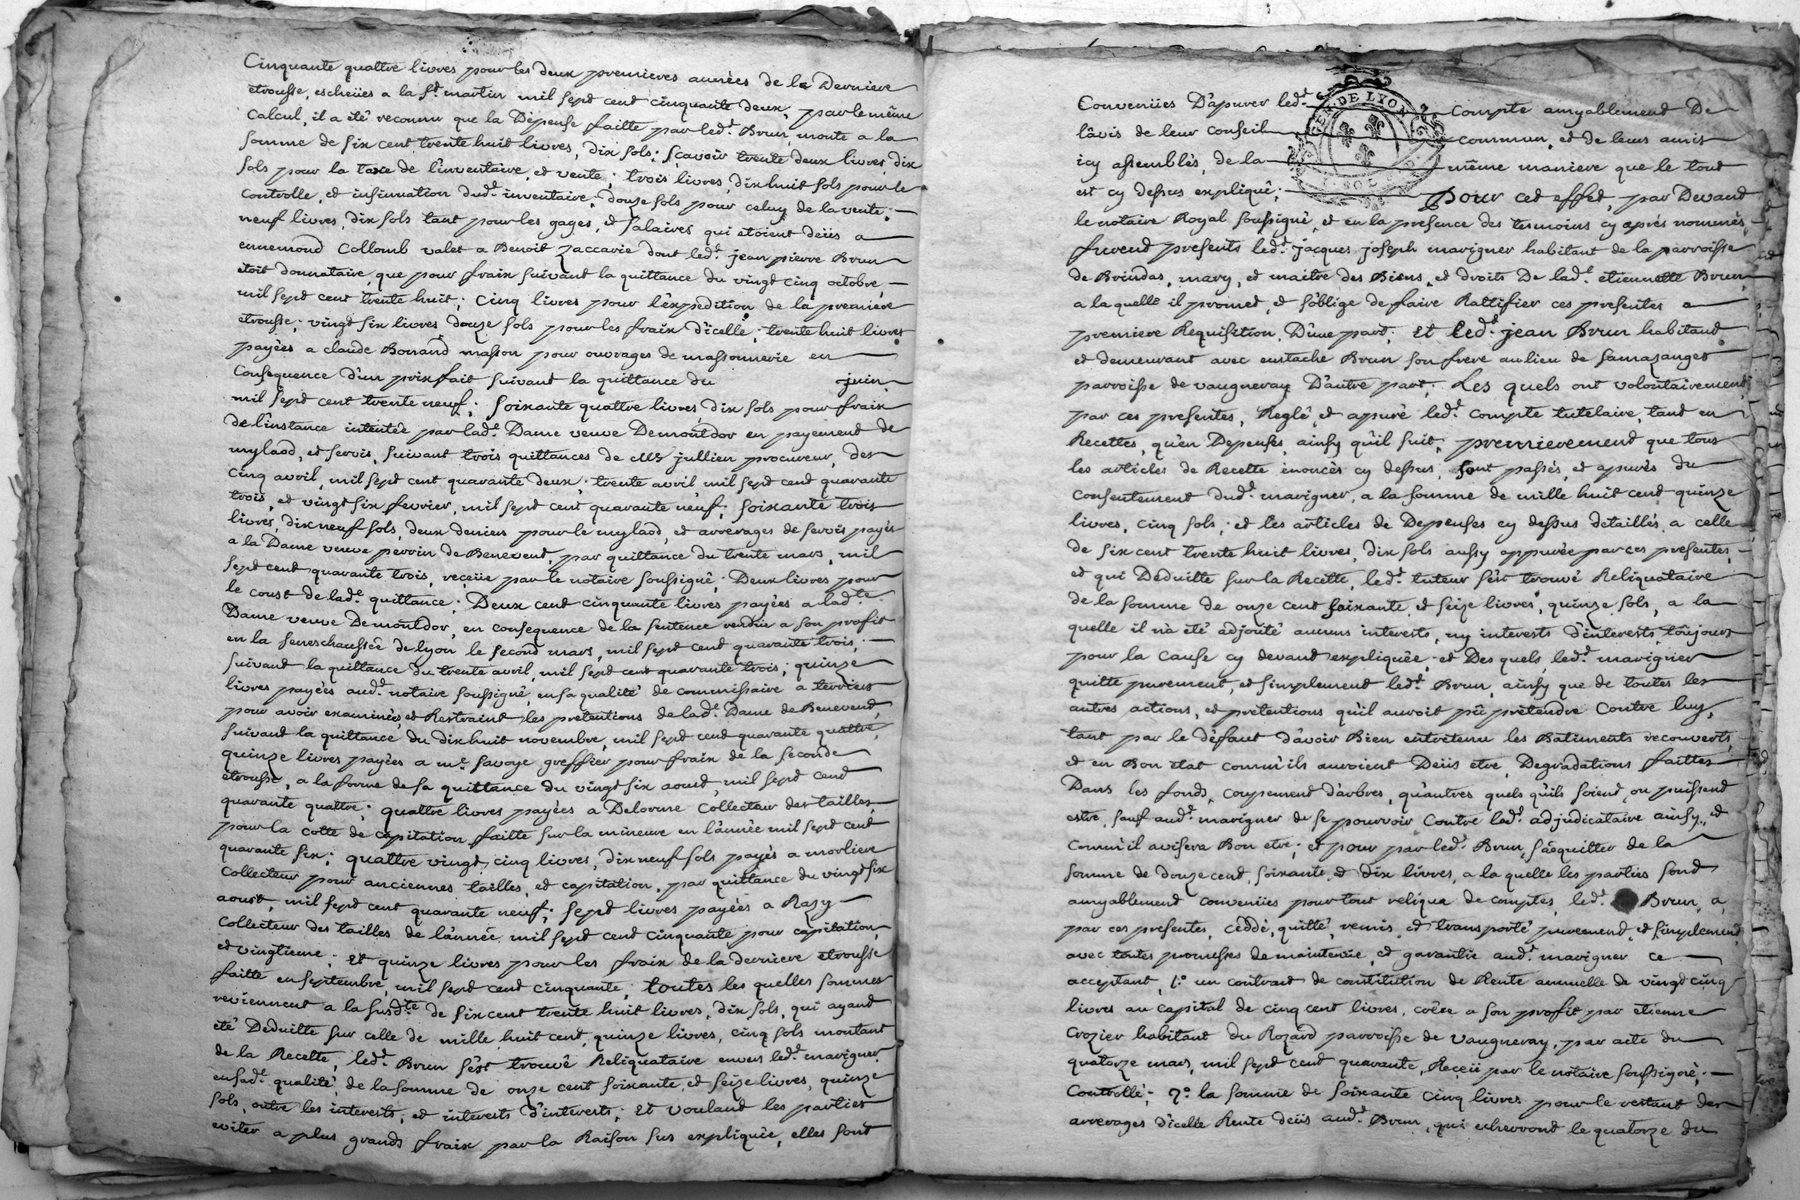 Cinquante quattre livres pour les deux premieres années de la Derniere
etrousse, escheües a la St. martin mil sept cent cinquante deux, par le même
Calcul, il a été reconnu que la Depense faitte par led.t Brun, monte a la
somme de six cent trente huit livres, dix sols; sçavoir trente deux livres, dix
sols pour la taxe de l'inventaire, et vente; trois livres, dix huit sols pour le
controlle, et insinuation dud.t inventaire, douze sols pour celuy de la vente;
neuf livres, dix sols tant pour les gages, et salaires qui étoient deûs a
ennemond Collomb valet a Benoit Zaccarie dont led.t jean pierre Brun
etoit donnataire, que pour fraix suivant la quittance du vingt cinq octobre,
mil sept cent trente huit; Cinq livres pour l'expedition, de la premiere
etrousse; vingt six livres douze sols pour les fraix d'icelle; trente huit livres
payées a claude Bonnand masson pour ouvrages de massonnerie en
Consequence d'un prixfait suivant la quittance du juin
mil sept cent trente neuf; Soixante quattre livres dix sols pour fraix
de l'instance intentée par lad.e Dame veuve Demontdor en payement de
mylaod, et servis, suivant trois quittances de Me jullien procureur, des
Cinq avril, mil sept cent quarante deux; trente avril mil sept cent quarante
trois, et vingt six fevrier, mil sept cent quarante neuf; soixante trois
livres, dix neuf sols, deux deniers pour le mylaod, et arrerages de servis payés
a la Dame veuve perrin de Benevent, par quittance du trente mars, mil
sept cent quarante trois, reçeüe par le notaire soussigné; Deux livres pour
le coust de lad.e quittance; Deux cent cinquante livres payées a lad.te
Dame veuve Demontdor, en consequence de la sentence rendue a son profit
en la seneschaussée de lyon le second mars, mil sept cent quarante trois;
suivant la quittance du trente avril, mil sept cent quarante trois; quinze
livres payées aud.t notaire soussigné, en sa qualité de commissaire a terriers
pour avoir examinés et Restraint les pretentions de lad.e Dame de Benevent,
suivant la quittance du dix huit novembre, mil sept cent quarante quattre,
quinze livres payées a m.e Savoye greffier pour fraix de la seconde
etrousse, a la forme de sa quittance du vingt six aoust, mil sept cent
quarante quattre; quattre livres payées a Delorme Collecteur des tailles
pour la cotte de capitation faitte sur la mineure en l'année mil sept cent
quarante six; quattre vingt cinq livres, dix neuf sols payés a morliere
Collecteur pour anciennes tailles, et capitation, par quittance du vingt six
aoust, mil sept cent quarante neuf; sept livres payées a Razy
Collecteur des tailles de l'année mil sept cent cinquante pour capitation,
et vingtieme; Et quinze livres pour les fraix de la derniere etrousse
faitte en septembre, mil sept cent cinquante; toutes les quelles sommes
reviennent a la susd.te de six cent trente huit livres, dix sols, qui ayant
été Deduitte sur celle de mille huit cent, quinze livres, cinq sols montant
de la Recette, led.t Brun s'est trouvé Reliquataire envers led.t marigner
en sad.e qualité, de la somme de onze cent soixante, et seize livres, quinze
sols, outre les interests, et interests d'interests; Et voulant les parties
eviter a plus grands fraix par la Raison sus expliquée, elles sont
Conveniies D'apurer led.t Compte amyablement De
l'avis de leur Conseil commun, et de leurs amis
icy assemblés, de la même maniere que le tout
est cy dessus expliqué; Pour cet effet, par Devant
le notaire Royal soussigné, et en la presence des temoins cy aprés nommés,
furent presents led.t jacques joseph marigner habitant de la parroisse
de Brindas, mary, et maitre des Biens, et droits De lad.e etiennette Brun,
a la quelle il promet, et s'oblige de faire Rattifier ces presentes a
premiere Requisition, D'une part; Et led.t jean Brun habitant
et demeurant avec eustache Brun son frere au lieu de samazanges
parroisse de vaugneray D'autre part; Les quels ont volontairement
par ces presentes, Reglé, et apuré led.t Compte tutelaire, tant en
Recettes, qu'en Depenses, ainsy qu'il suit, premierement que tous
les articles de Recette énoncés cy dessus, sont passés, et apurés du
consentement dud.t marigner, a la somme de mille huit cent quinze
livres, cinq sols; et les articles de Depenses cy dessus detaillés, a celle
de six cent trente huit livres, dix sols aussy appurée par ces presentes,
et qui Deduitte sur la Recette, led.t tuteur s'est trouvé Reliquataire
de la somme de onze cent soixante, et seize livres, quinze sols, a la
quelle il n'a été adjouté aucuns interests, ny interests d'interests, toujours
pour la cause cy devant expliquée; et Des quels led.t marigner
quitte purement, et simplement led.t Brun, ainsy que de toutes les
autres actions, et pretentions qu'il auroit pû prétendre Contre luy,
tant par le défaut d'avoir Bien entretenu les Batiments recouverts,
et en Bon etat comm'ils auroient Deüs etre, Degradations faittes
Dans les fonds, Coupement d'arbres, qu'autres quels qu'ils soient, ou puissent
estre, sauf aud.t marigner de se pourvoir Contre led.t adjudicataire ainsy, et
comm'il avisera Bon etre; et pour par led.t Brun, s'acquitter de la
somme de douze cent, soixante, et dix livres, a la quelle les parties sont
amyablement conveniies pour tout reliqua de comptes, led.t Brun, a
par ces presentes, Céddé, quitté, remis, et transporté purement, et simplement
avec toutes promesses de maintenüe, et garantie aud.t marigner ce
acceptant, 1.o un contract de constitution de Rente annuelle de vingt cinq
livres au capital de cinq cent livres, créée a son profit par etienne
Crozier habitant du Rozard parroisse de Vaugneray, par acte du
quatorze mars, mil sept cent quarante, Receü par le notaire soussigné,
Controllé; 2.o la somme de soixante cinq livres pour le restant des
arrerages d'icelle Rente deüs aud.t Brun, qui echerront le quatorze du
GEN. DE LYON
SOLS